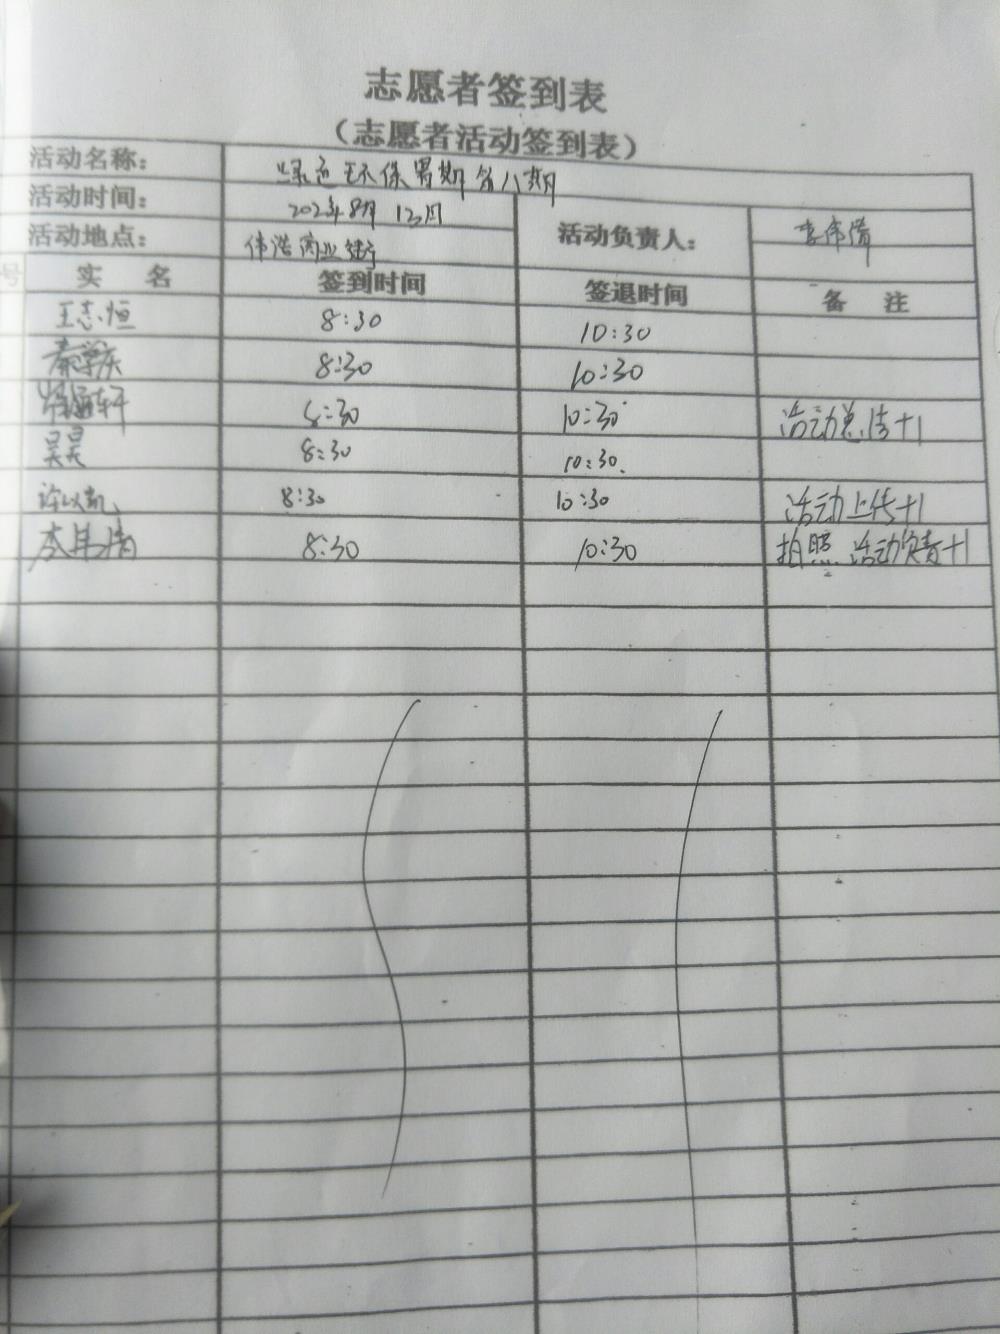 志愿者签到表
（志愿者活动签到表）
活动名称： 环保暑期 第八期
活动时间： 2023年8月 12日
活动地点： 伟浩商业 活动负责人： 李伟倩
号 实 名 签到时间 签退时间 备 注
王志恒 8:30 10:30
秦学庆 8:30 10:30
轩 8:30 10:30 活动总结+1
吴昊 8:30 10:30
8:30 10:30 活动上传+1
李伟倩 8:30 10:30 拍照 活动负责+1